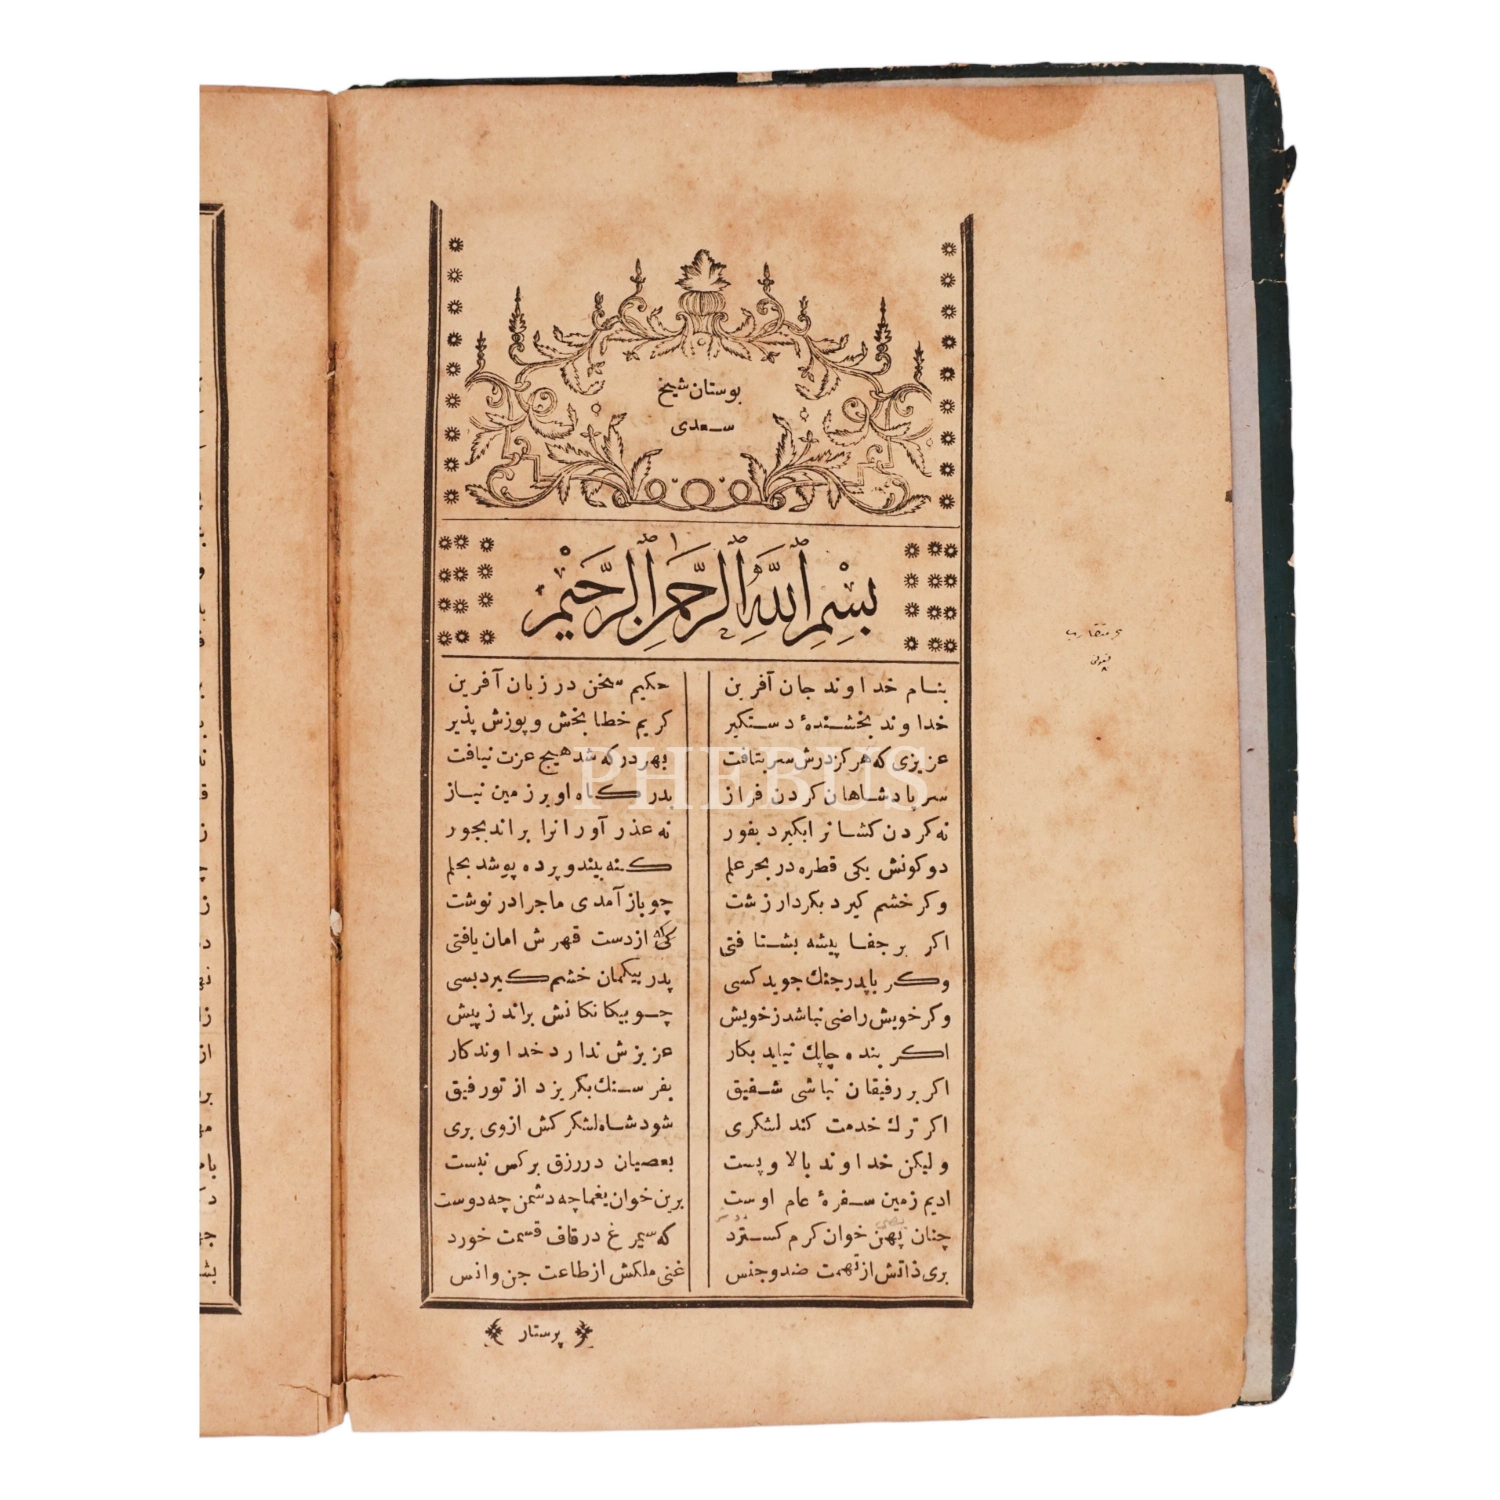 بوستان شيخ
سعدى
بِسْمِ اللَّهِ الرَّحْمَنِ الرَّحِيْمِ
بنام خداوند جان آفرين حكيم سخن در زبان آفرين
خداوند بخشندهٔ دستكير كريم خطا بخش و پوزش پذير
عزيزى كه هركز درش سر بتافت بهر دركه شد هيچ عزت نيافت
سر پادشاهان كردن فراز بدركاه او بر زمين نياز
نه كردن كشانرا بكيرد بفور نه عذر آورانرا براند بجور
دو كونش يكى قطره در بحر علم كنه بيند و پرده پوشد بحلم
وكر خشم كيرد بكردار زشت چو باز آمدى ماجرا در نوشت
اكر بر جفا پيشه بشتافتى كى از دست قهرش امان يافتى
وكر با پدر جنك جويد كسى پدر بيكمان خشم كيرد بسى
وكر خويش راضى نباشد ز خويش چو بيكانكانش براند ز پيش
اكر بنده چابك نيايد بكار عزيزش ندارد خداوندكار
اكر بر رفيقان نباشى شفيق بفرسنك بكريزد از تو رفيق
اكر ترك خدمت كند لشكرى شود شاه لشكركش از وى برى
وليكن خداوند بالا و پست بعصيان در رزق بر كس نبست
اديم زمين سفرهٔ عام اوست برين خوان يغما چه دشمن چه دوست
چنان پهن خوان كرم كسترد كه سيمرغ در قاف قسمت خورد
برى ذاتش از تهمت ضد و جنس غنى ملكش از طاعت جن و انس
پرستار
بحر متقارب
فعولن
PHEBUS